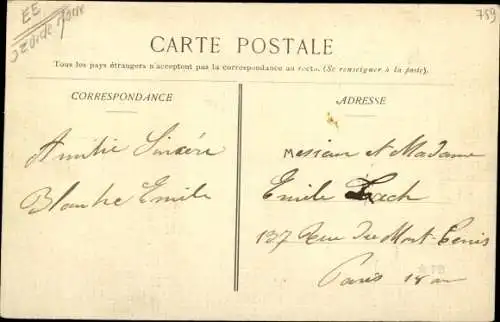 EE
759
CARTE POSTALE
Tous les pays étrangers n'acceptent pas la correspondance au recto. (Se renseigner à la poste).
CORRESPONDANCE
ADRESSE
Amitié Sincère
Blanche Emile
Messieur et Madame
Emile Zach
137 Rue du Mont-Cenis
Paris 18